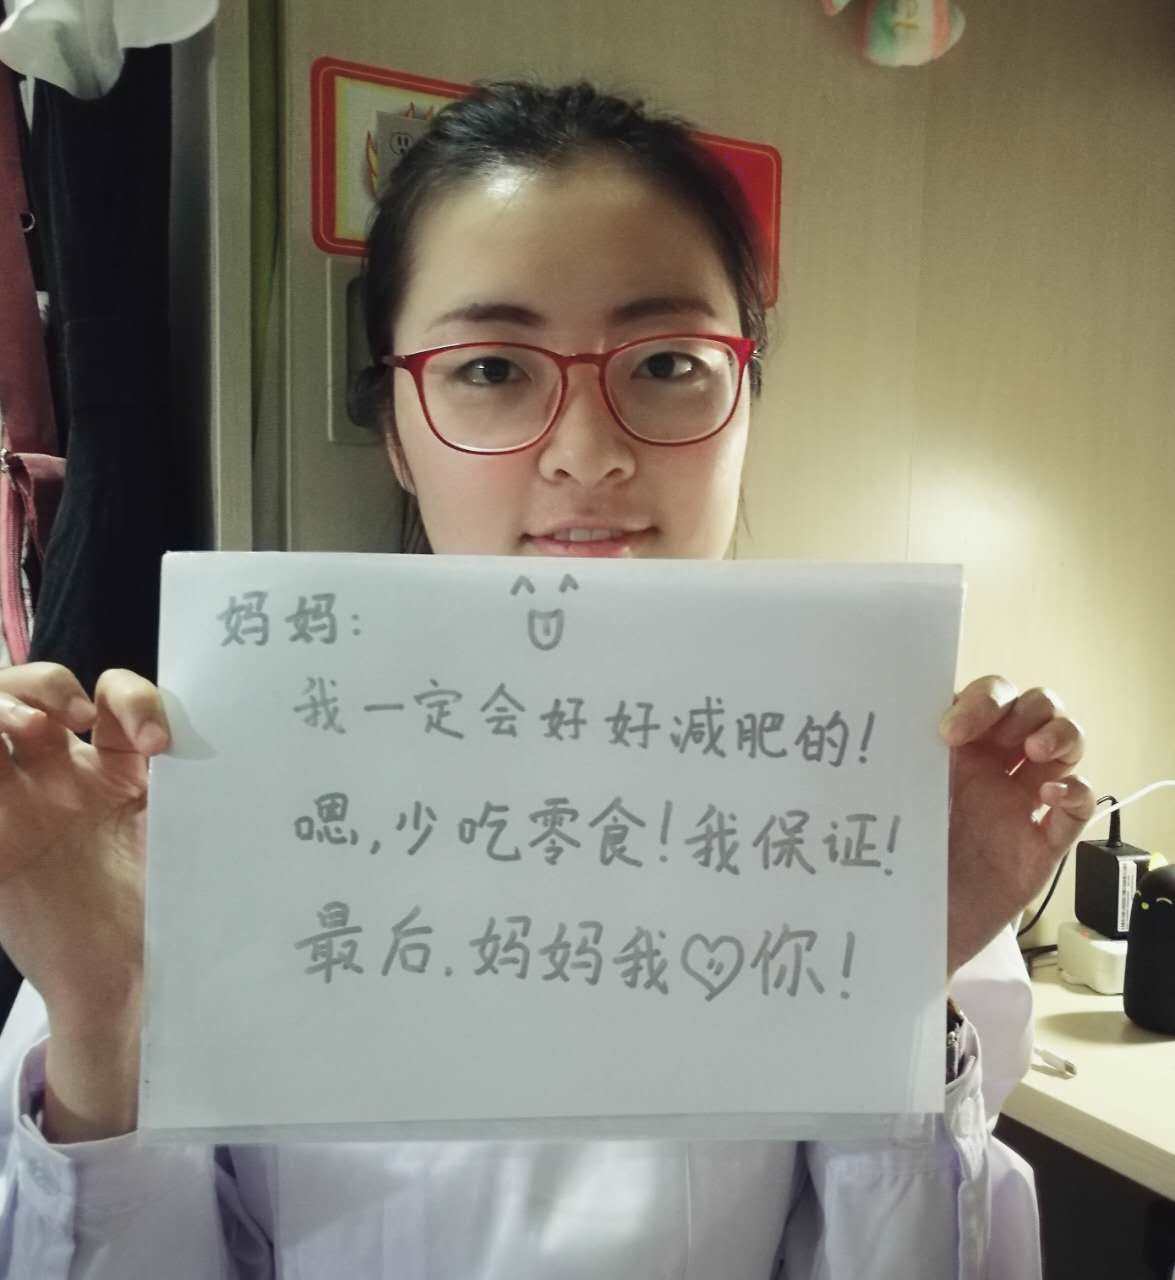 妈妈:
我一定会好好减肥的!
嗯,少吃零食!我保证!
最后.妈妈我♡你!